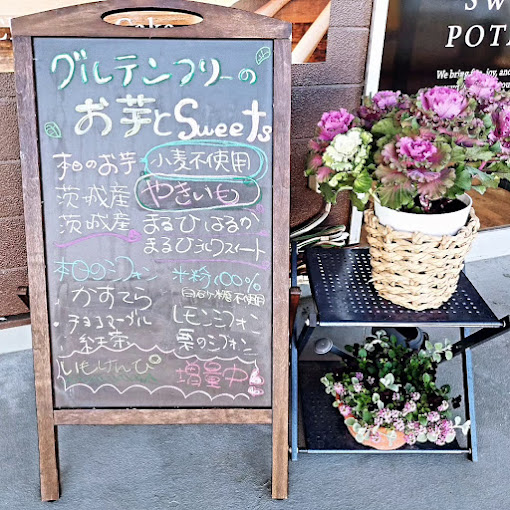 Cake
SW
POTA
We bring fun, joy, and
グルテンフリーの
お芋とSweets
本日のお芋 小麦不使用
茨城産 やきいも
茨城産 まるひはるか
まるひシルクスイート
本日のシフォン 米粉100%
白砂糖不使用
かすてら
チョコマーブル レモンシフォン
紅茶 栗のシフォン
いもけんぴ 増量中